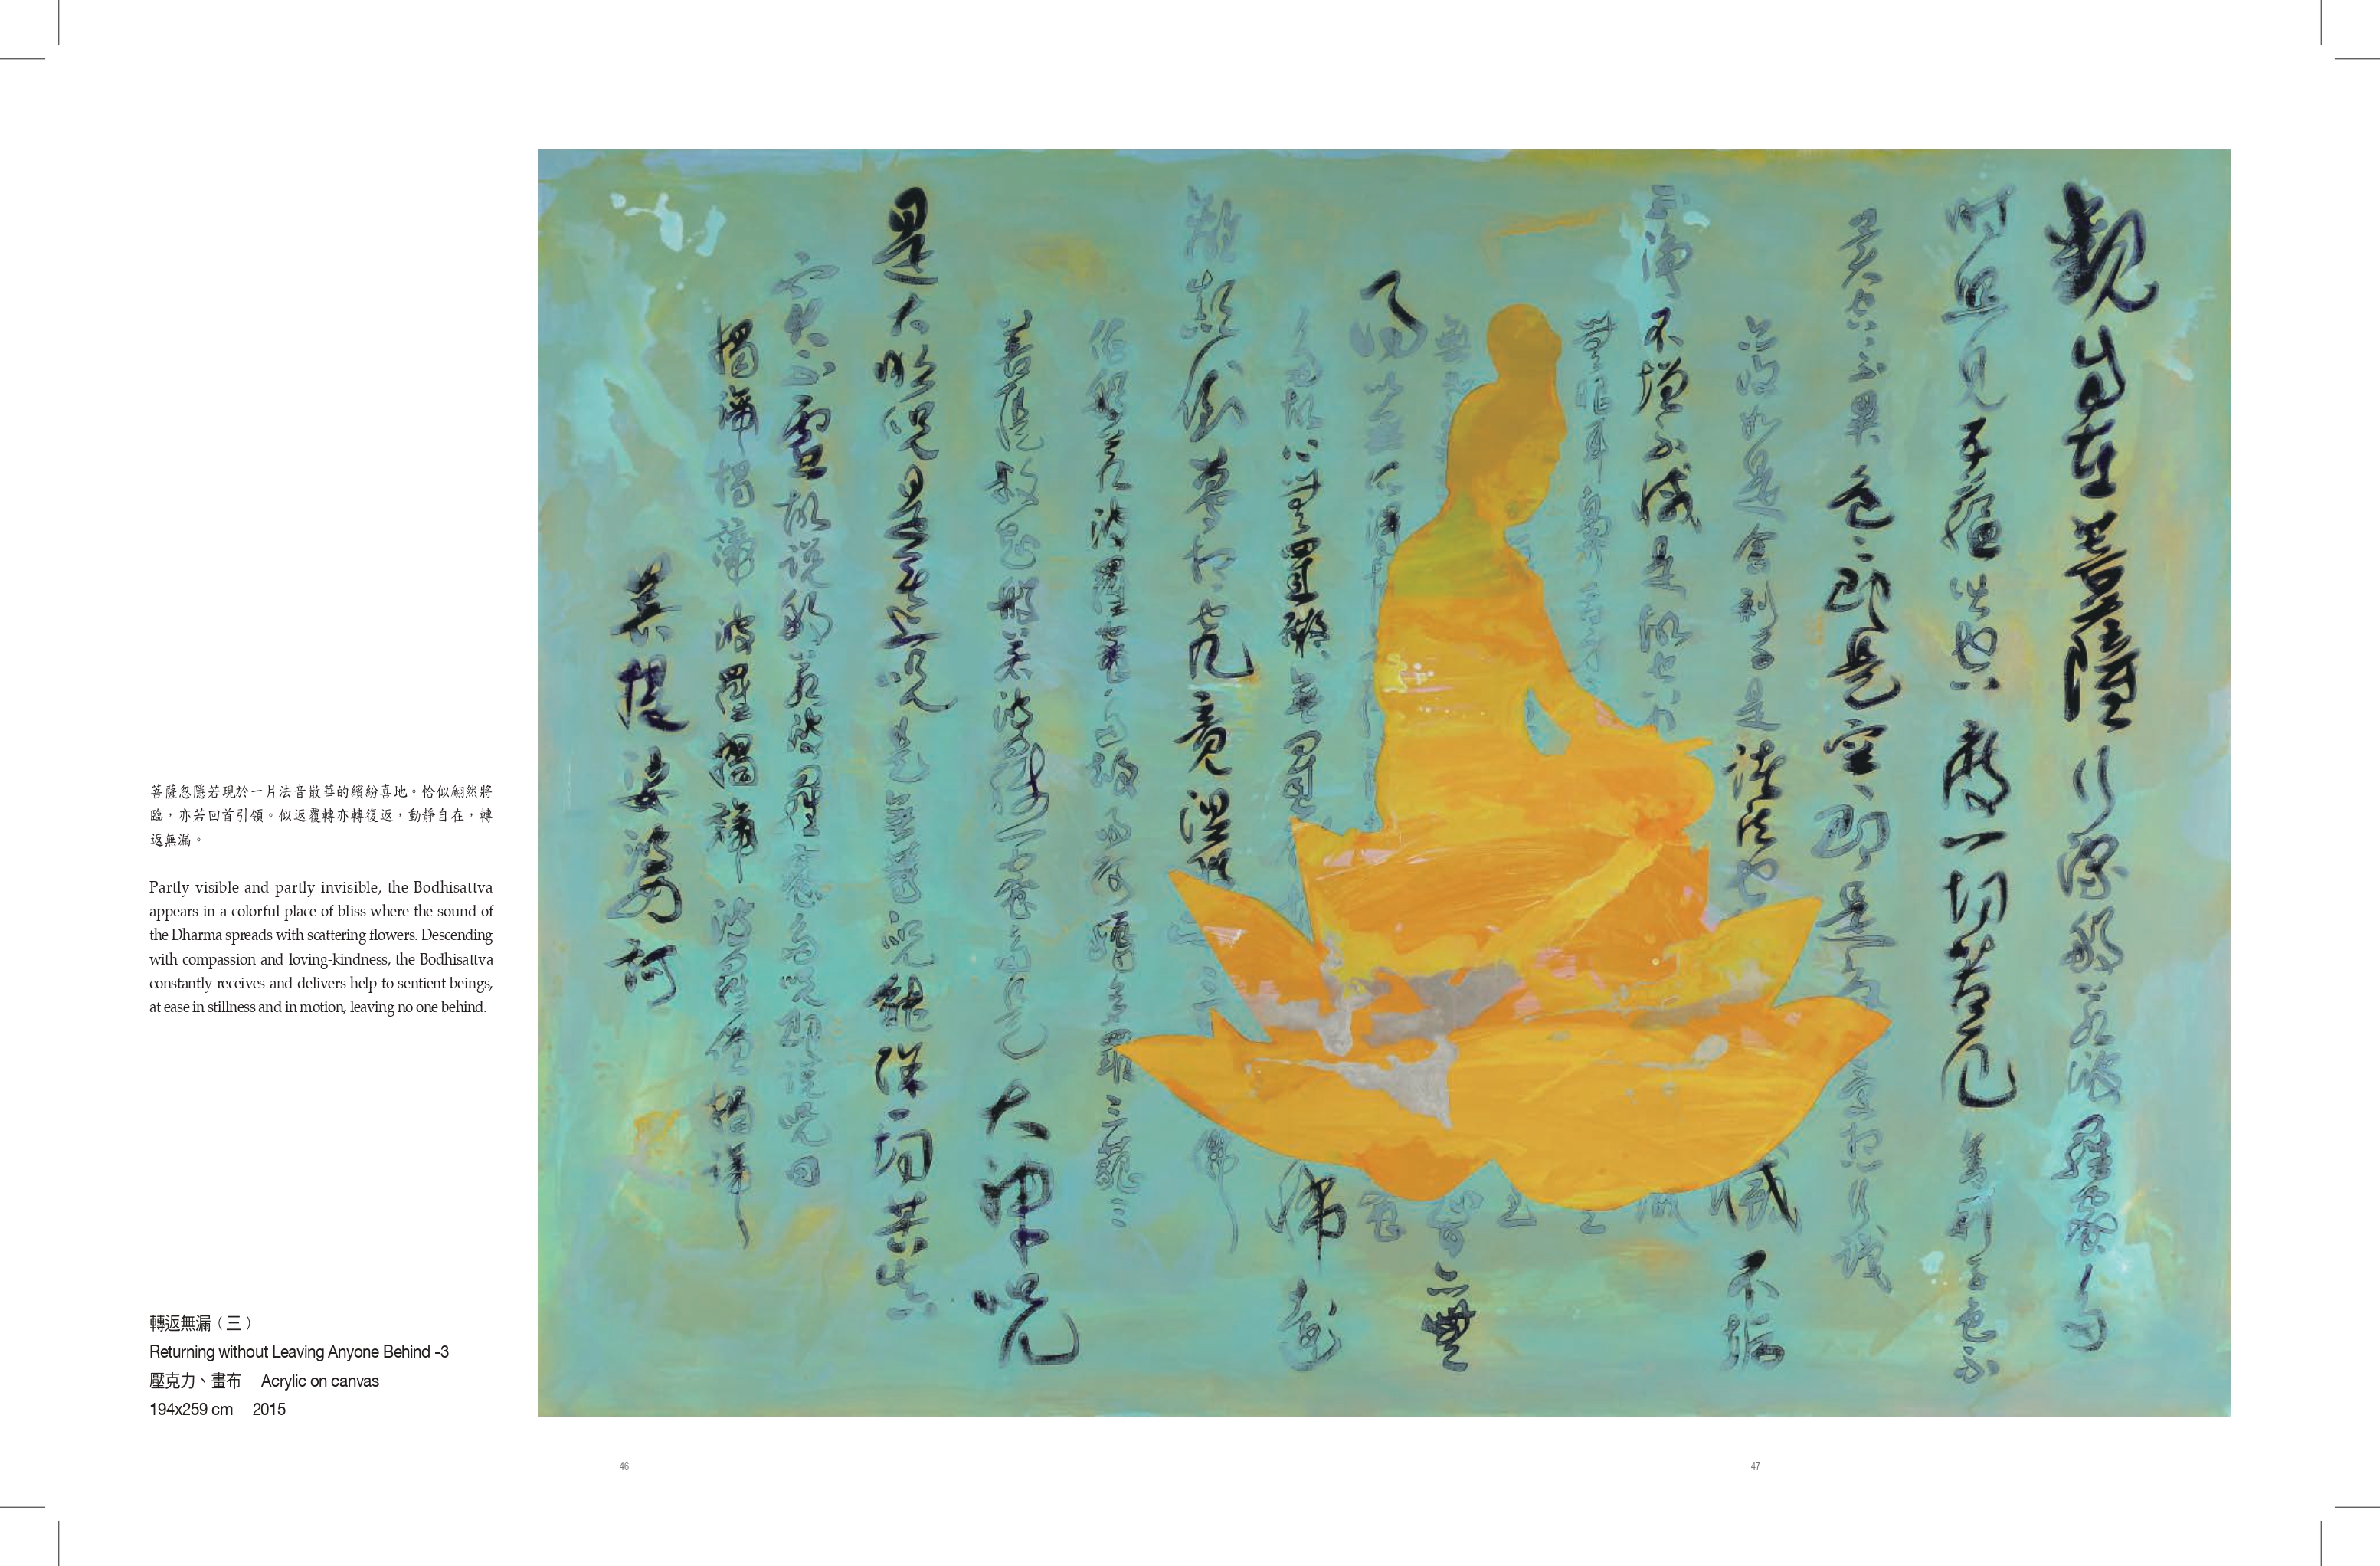 菩薩忽隱若現於一片法音散華的繽紛喜地。恰似翩然將
臨，亦若回首引領。似返覆轉亦轉復返，動靜自在，轉
返無漏。
Partly visible and partly invisible, the Bodhisattva
appears in a colorful place of bliss where the sound of
the Dharma spreads with scattering flowers. Descending
with compassion and loving-kindness, the Bodhisattva
constantly receives and delivers help to sentient beings,
at ease in stillness and in motion, leaving no one behind.
轉返無漏（三）
Returning without Leaving Anyone Behind -3
壓克力、畫布 Acrylic on canvas
194x259 cm 2015
觀自在菩薩行深般若波羅蜜多
時照見五蘊皆空度一切苦厄舍利子色不
異空空不異色色即是空空即是色受想行識
亦復如是舍利子是諸法空滅不垢
不淨不增不減是故空中
無眼耳鼻舌身
無亦無
以無所得
多故心無罣礙無罣
離顛倒夢想究竟涅槃三佛
依般若波羅蜜多故得阿耨多羅三藐三
菩提故知般若波羅蜜多是大神咒
是大明咒是無上咒是無等等咒能除一切苦真
實不虛故說般若波羅蜜多咒即說咒曰
揭諦揭諦波羅揭諦波羅僧揭諦
菩提娑婆訶
46
47